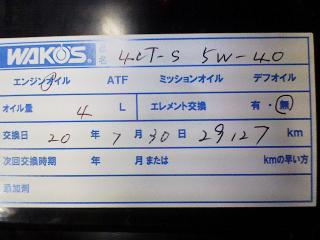 WAKO'S 品名 4CT-S 5W-40
エンジンオイル ATF ミッションオイル デフオイル
オイル量 4 L エレメント交換 有・無
交換日 20年 7月 30日 29,127 km
次回交換時期 年 月または kmの早い方
添加剤